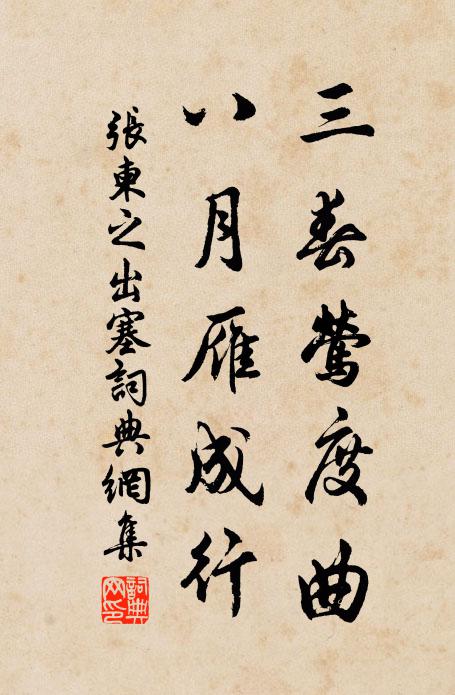 三春鶯度曲
八月雁成行
張東之出塞詞典網集
詞典
网印